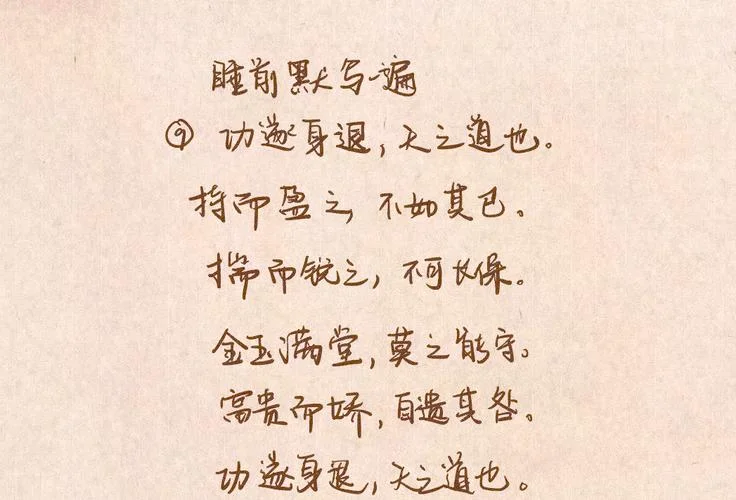 睡前默写一遍
⑨ 功遂身退,天之道也。
持而盈之,不如其已。
揣而锐之,不可长保。
金玉满堂,莫之能守。
富贵而娇,自遗其咎。
功遂身退,天之道也。